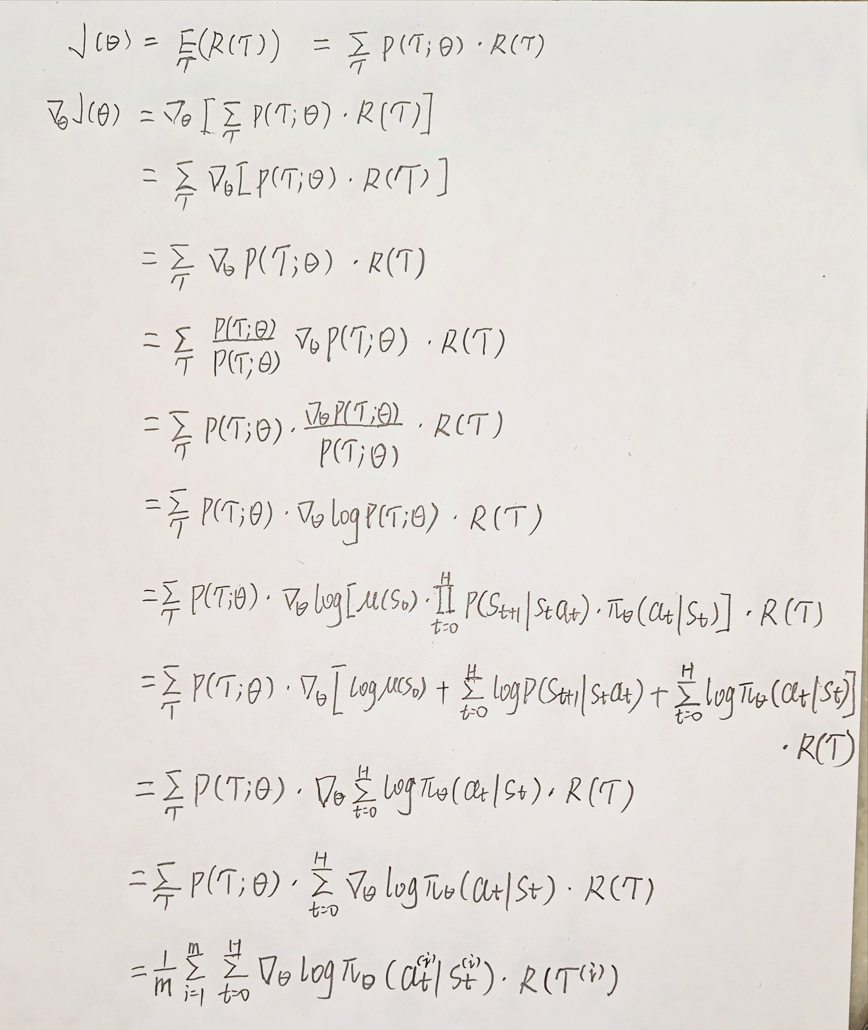 J(θ) = E_T(R(T)) = Σ_T P(T;θ) · R(T)
∇_θ J(θ) = ∇_θ [Σ_T P(T;θ) · R(T)]
= Σ_T ∇_θ[P(T;θ) · R(T)]
= Σ_T ∇_θ P(T;θ) · R(T)
= Σ_T P(T;θ)/P(T;θ) ∇_θ P(T;θ) · R(T)
= Σ_T P(T;θ) · ∇_θ P(T;θ)/P(T;θ) · R(T)
= Σ_T P(T;θ) · ∇_θ log P(T;θ) · R(T)
= Σ_T P(T;θ) · ∇_θ log[μ(s_0) · ∏_{t=0}^{H} P(s_{t+1}|s_t a_t) · π_θ(a_t|s_t)] · R(T)
= Σ_T P(T;θ) · ∇_θ [log μ(s_0) + Σ_{t=0}^{H} log P(s_{t+1}|s_t a_t) + Σ_{t=0}^{H} log π_θ(a_t|s_t)]
· R(T)
= Σ_T P(T;θ) · ∇_θ Σ_{t=0}^{H} log π_θ(a_t|s_t) · R(T)
= Σ_T P(T;θ) · Σ_{t=0}^{H} ∇_θ log π_θ(a_t|s_t) · R(T)
= 1/m Σ_{i=1}^{m} Σ_{t=0}^{H} ∇_θ log π_θ(a_t^{(i)}|s_t^{(i)}) · R(T^{(i)})